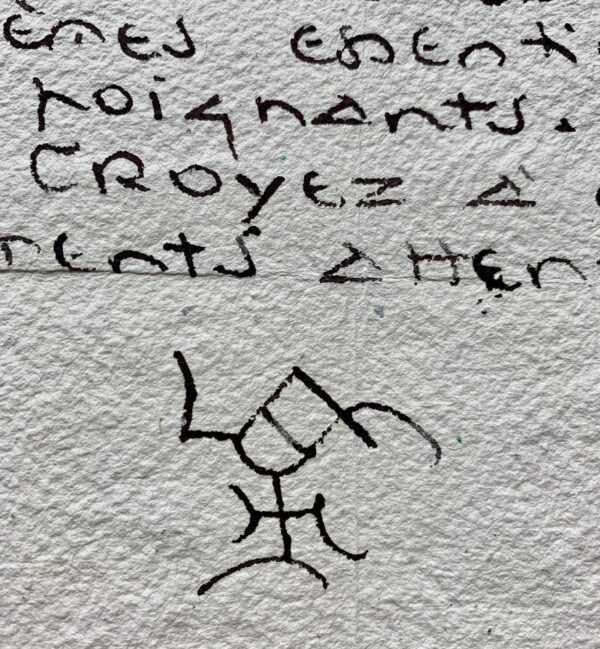 ènes esenti
poignants.
CROyEZ A
ments Atten